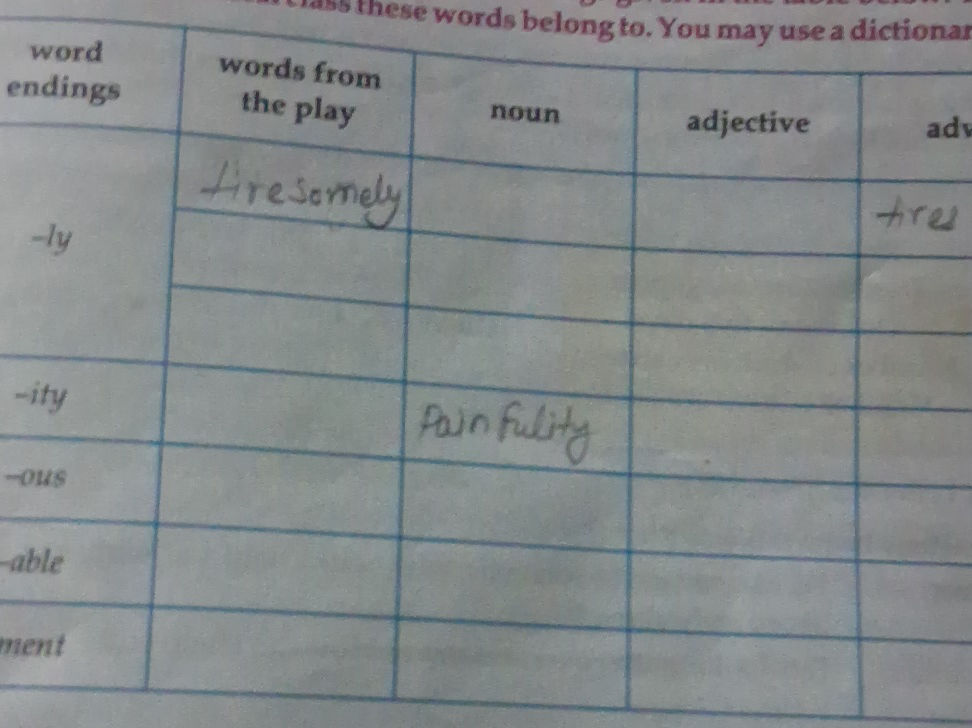 class these words belong to. You may use a dictionar
word endings
words from the play
noun
adjective
adv
-ly
tiresomely
tires
-ity
Painfulity
-ous
-able
ment